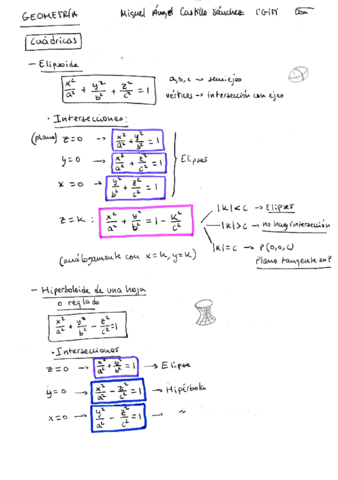 GEOMETRÍA Miguel Ángel Castillo Sánchez 1ºGITT
Cuádricas
- Elipsoide
x²/a² + y²/b² + z²/c² = 1
a,b,c → semiejes
vértices → intersección con ejes
· Intersecciones:
(plano) z=0 → x²/a² + y²/b² = 1
y=0 → x²/a² + z²/c² = 1
x=0 → y²/b² + z²/c² = 1
Elipses
z=k : x²/a² + y²/b² = 1 - k²/c²
|k|<c → Elipses
|k|>c → no hay intersección
|k|=c → P(0,0,c)
Plano tangente en P
(análogamente con x=k, y=k)
- Hiperboloide de una hoja
o reglado
x²/a² + y²/b² - z²/c² = 1
· Intersecciones
z=0 → x²/a² + y²/b² = 1 → Elipse
y=0 → x²/a² - z²/c² = 1 → Hipérbola
x=0 → y²/b² - z²/c² = 1 → "